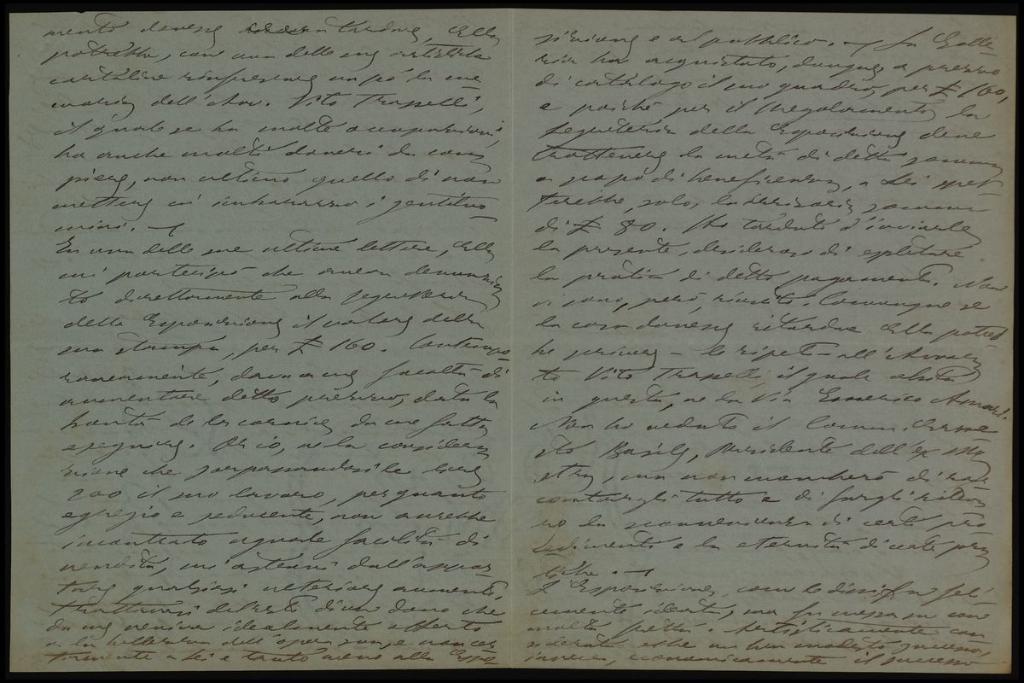 mento dovesse ancora tardare, Ella
potrebbe, con una delle sue artistiche
cartoline rinfrescare un po' la me
moria dell'Avv. Vito Trapelli,
il quale se ha molte occupazioni,
ha anche molti doveri da com
piere, non ultimo quello di non
mettere in imbarazzo i gentiluo
mini. —
In una delle sue ultime lettere, Ella
mi partecipò che aveva denunzia
to direttamente alla Segreteria
della Esposizione il valore della
sua stampa, per £ 160. Contempo
raneamente, dava a me facoltà di
aumentare detto prezzo, data la
bontà de la cornice da me fatta
eseguire. Per ciò, ne la considera
zione che sorpassando le lire
200 il suo lavoro, per quanto
egregio e seducente, non avrebbe
incontrato uguale facilità di
vendita, mi astenni dall'appor
tare qualsiasi ulteriore aumento,
trattandosi del resto di un dono che
da me veniva idealmente offerto
a la bellezza dell'opera sua, e non cer
tamente a Lei e tanto meno alla Espo
sizione e al pubblico. — La Galle
ria ha acquistato, dunque, a prezzo
di catalogo il suo quadro, per £ 160,
e poiché per il Regolamento la
Segreteria della Esposizione deve
trattenere la metà di detta somma
a scopo di beneficenza, a Lei spet
terebbe, solo, la somma
di £ 80. Ho tardato d'inviarle
la presente, desideroso di espletare
la pratica di detto pagamento. Non
ci sono, però, riuscito. Comunque se
la cosa dovesse ritardare Ella potreb
be scrivere — le ripeto — all'Avvoca
to Vito Trapelli, il quale abita
in questa, ne la Via Emerico Amari.
Non ho veduto il Comm. Erne
sto Basile, Presidente dell'ex Mo
stra, ma non mancherò di rac
contargli tutto e di fargli
la sconvenienza di certi pro
cedimenti e la eternità di certe pra
tiche. —
L'Esposizione, come le dissi, fu feli
cemente ideata, ma fu messa su con
molta fretta. Artisticamente con
siderata ebbe un ben modesto successo,
invece, economicamente il successo